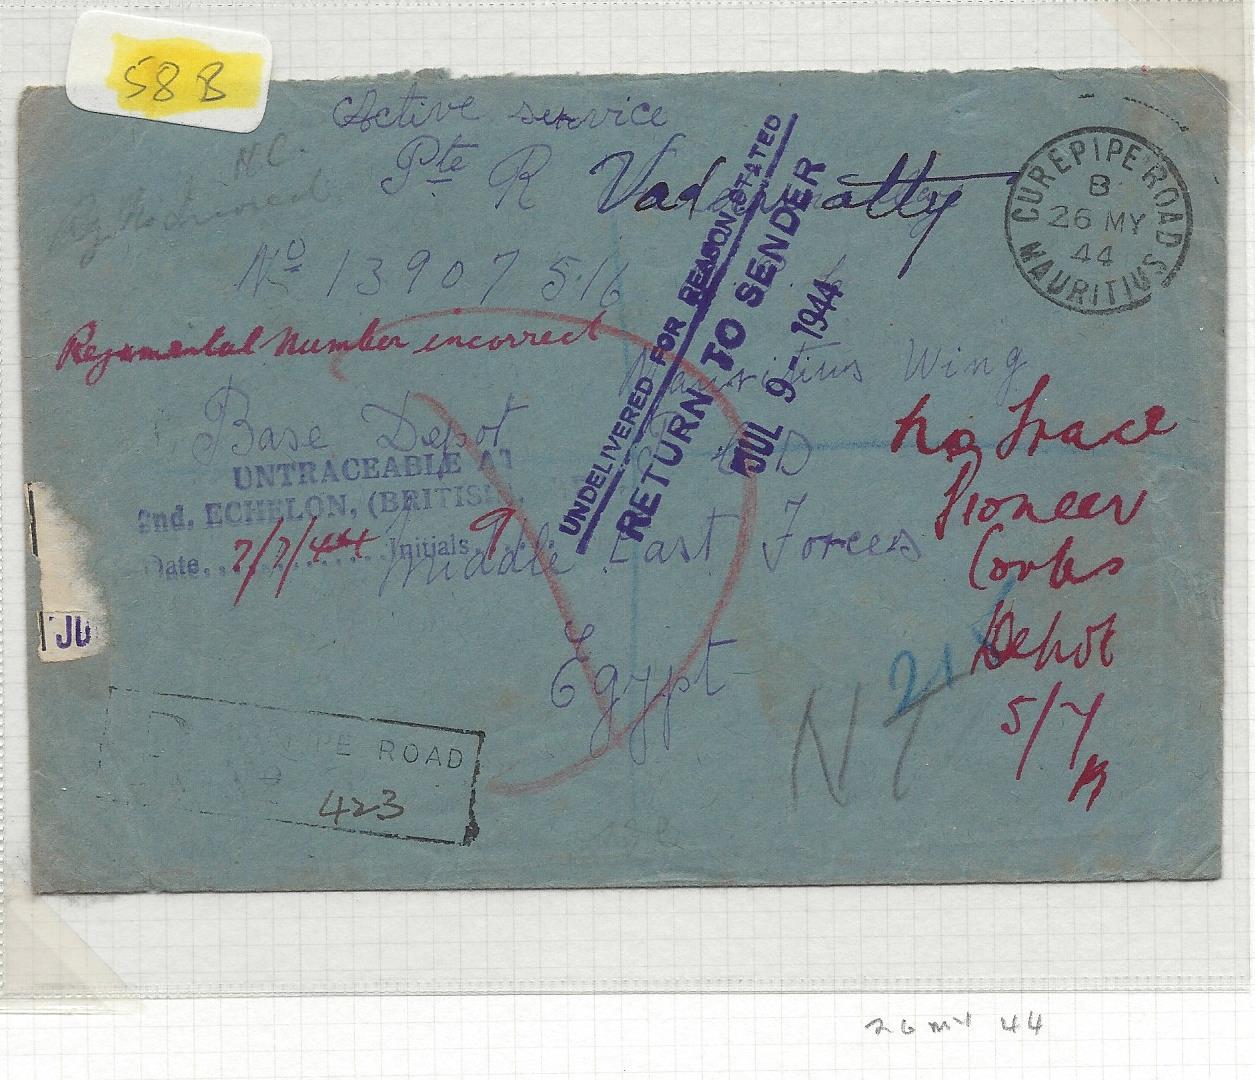 58 B
Active service
Pte R Vadamatty
N.C.
No 13907516
CUREPIPE ROAD
B
26 MY
44
MAURITIUS
UNDELIVERED FOR REASON STATED
RETURN TO SENDER
JUL 9-1944
Regemental Number incorrect
Mauritius Wing
Base Depot
UNTRACEABLE AT
2nd. ECHELON, (BRITISH
Date 7/7/44 Initials
Middle East Forces
Egypt
No Trace
Pioneer
Corks
Depot
5/7
JU
NT
PIPE ROAD
423
26 MY 44